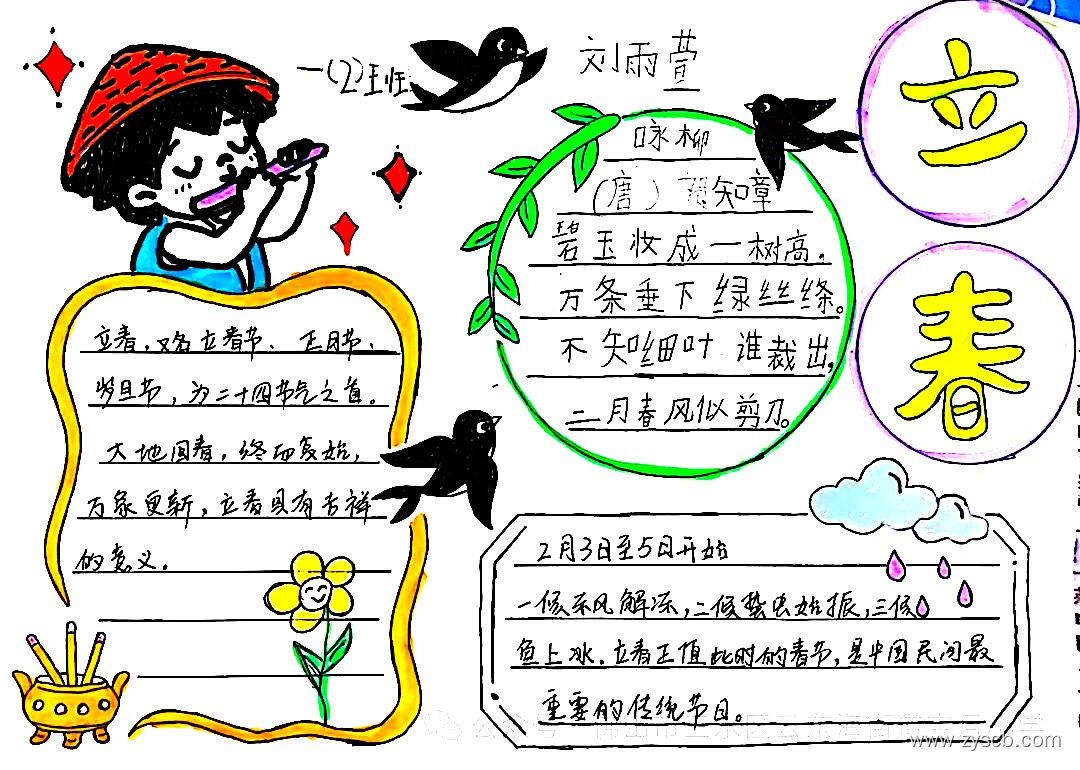 一(2)班
刘雨萱
立春
咏柳
(唐) 贺知章
碧玉妆成一树高。
万条垂下绿丝绦。
不知细叶谁裁出,
二月春风似剪刀。
立春,又名立春节、正月节、
岁旦节,为二十四节气之首。
大地回春,终而复始,
万象更新,立春具有吉祥
的意义。
2月3日至5日开始
一候东风解冻,二候蛰虫始振,三候
鱼上冰。立春正值此时的春节,是中国民间最
重要的传统节日。
www.zyscb.com